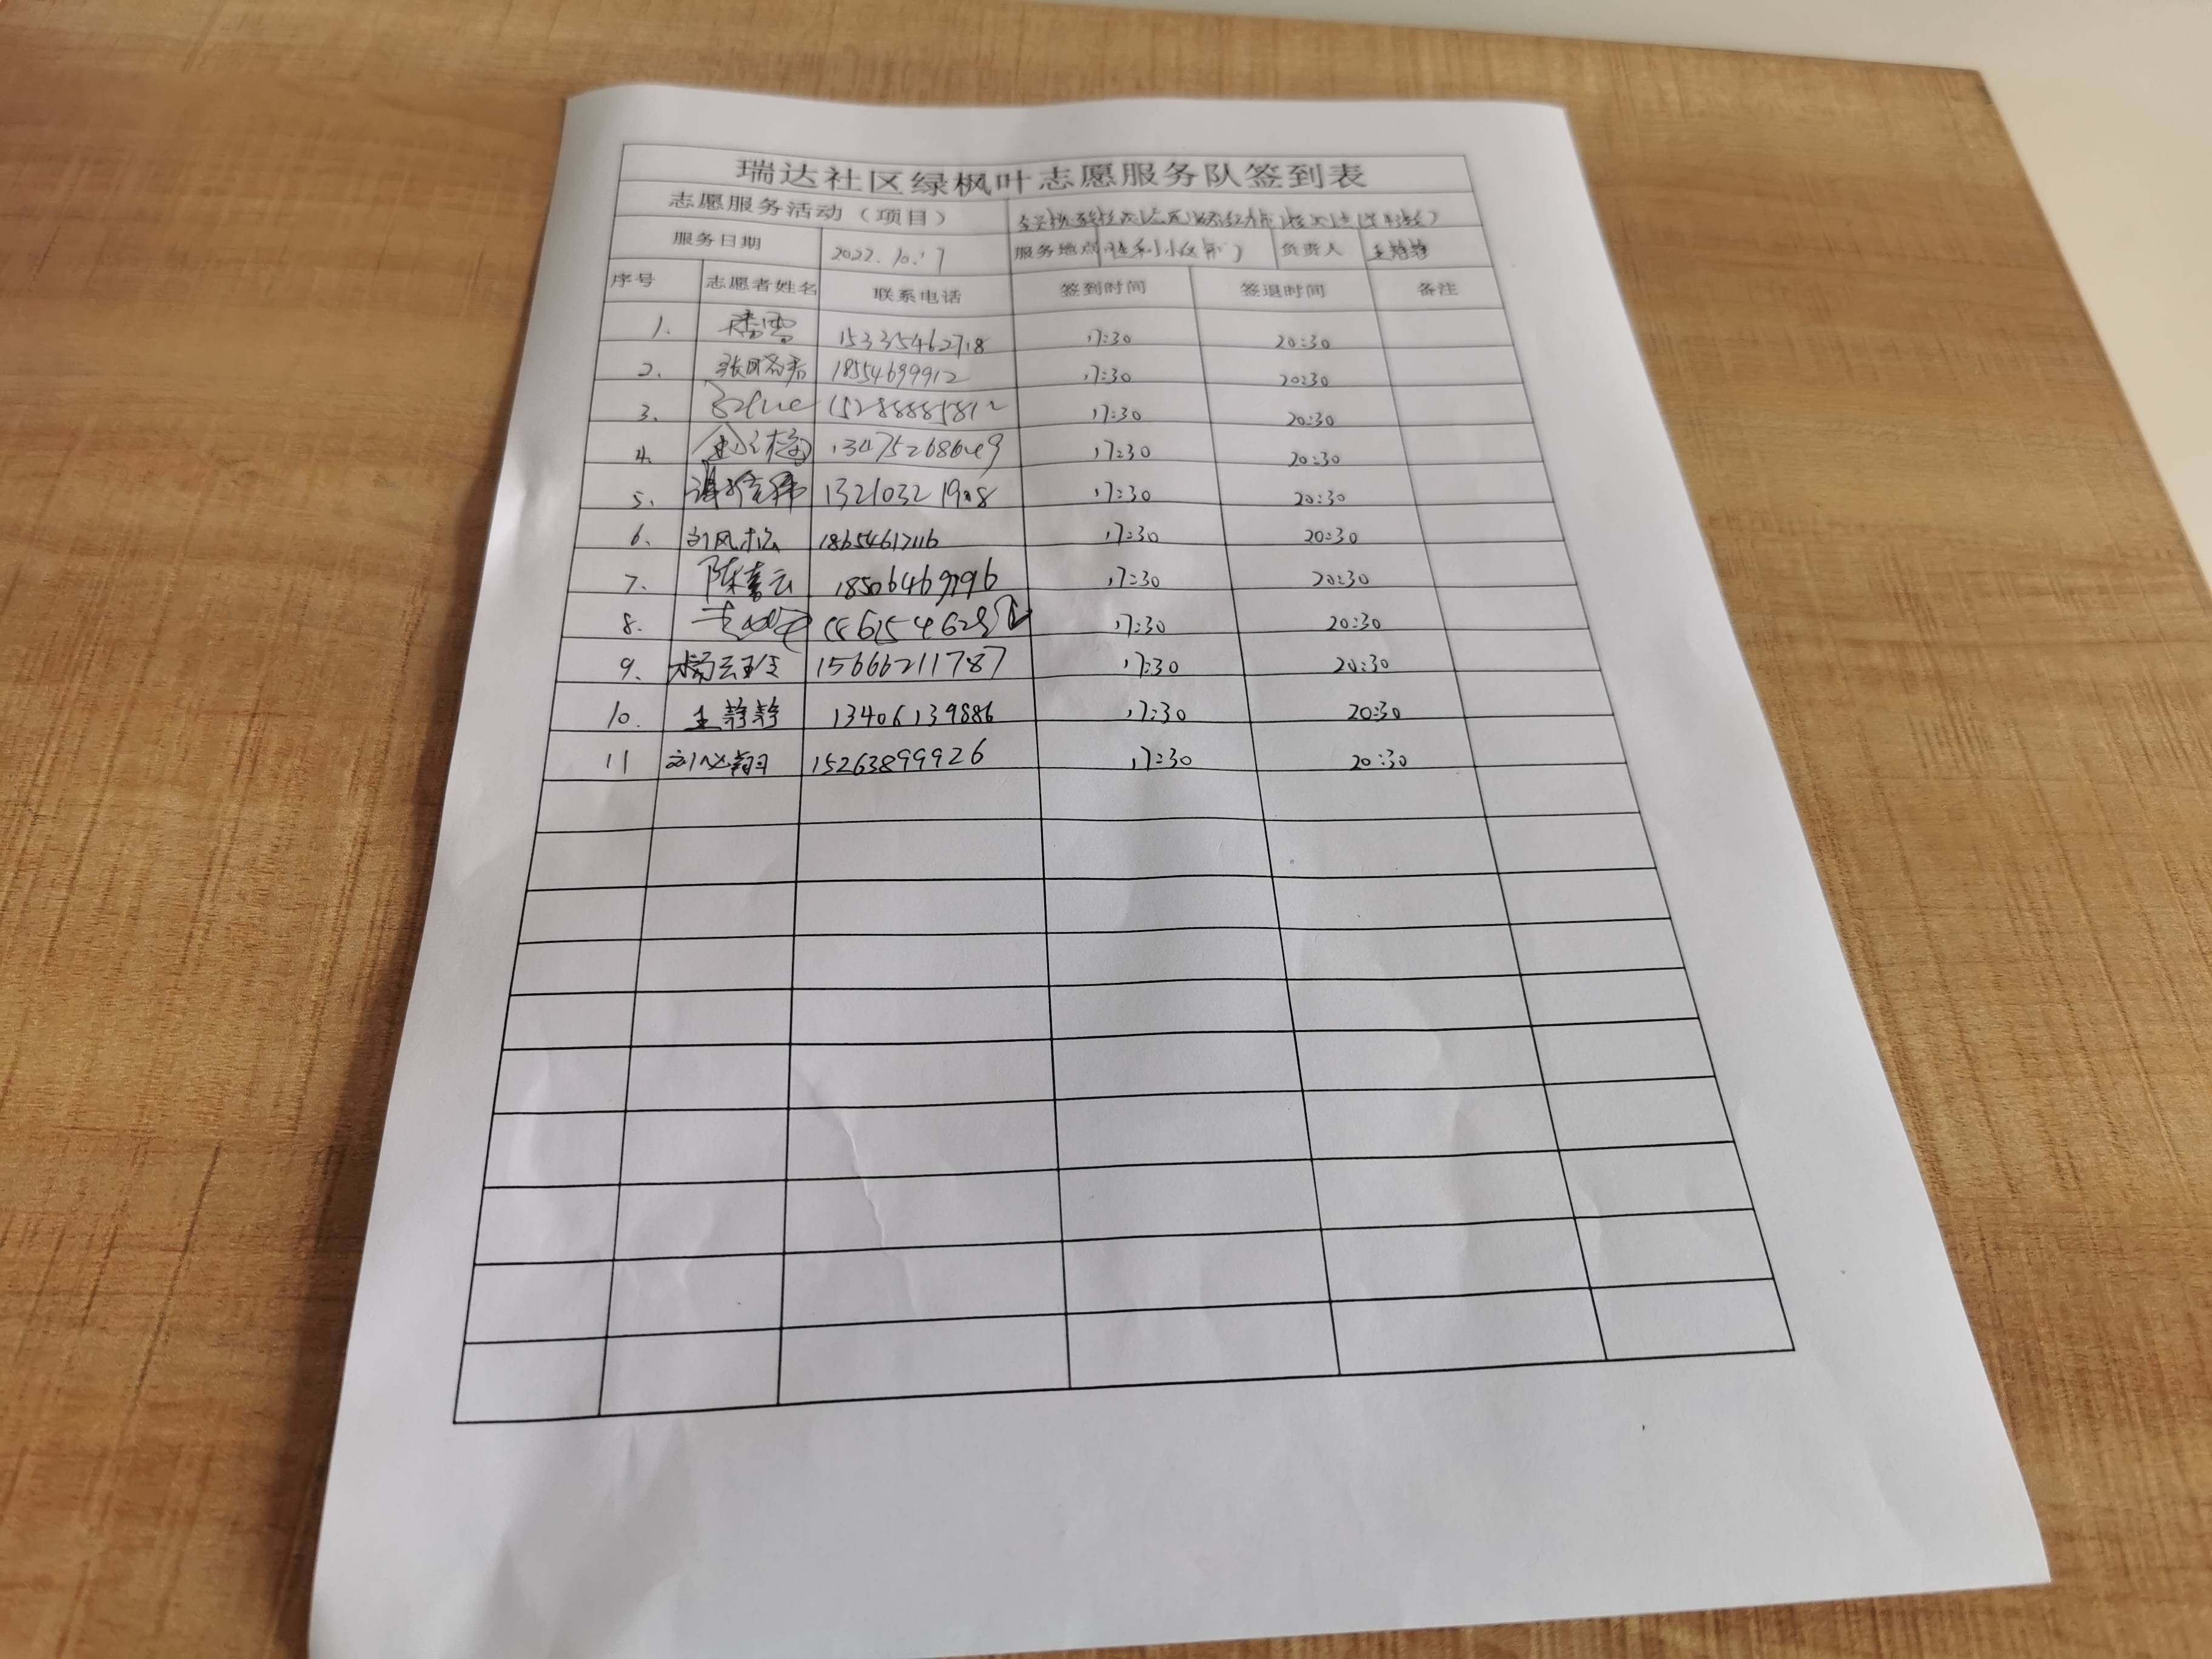 瑞达社区绿枫叶志愿服务队签到表
志愿服务活动（项目）
服务日期 2022.10.17 服务地点 负责人 王静静
序号 志愿者姓名 联系电话 签到时间 签退时间 备注
1. 潘雪 15335462718 17:30 20:30
2. 18554699912 17:30 20:30
3. 17:30 20:30
4. 17:30 20:30
5. 13210321908 17:30 20:30
6. 刘风松 17:30 20:30
7. 陈春云 17:30 20:30
8. 17:30 20:30
9. 杨云玲 15666211787 17:30 20:30
10. 王静静 13406139886 17:30 20:30
11 15263899926 17:30 20:30